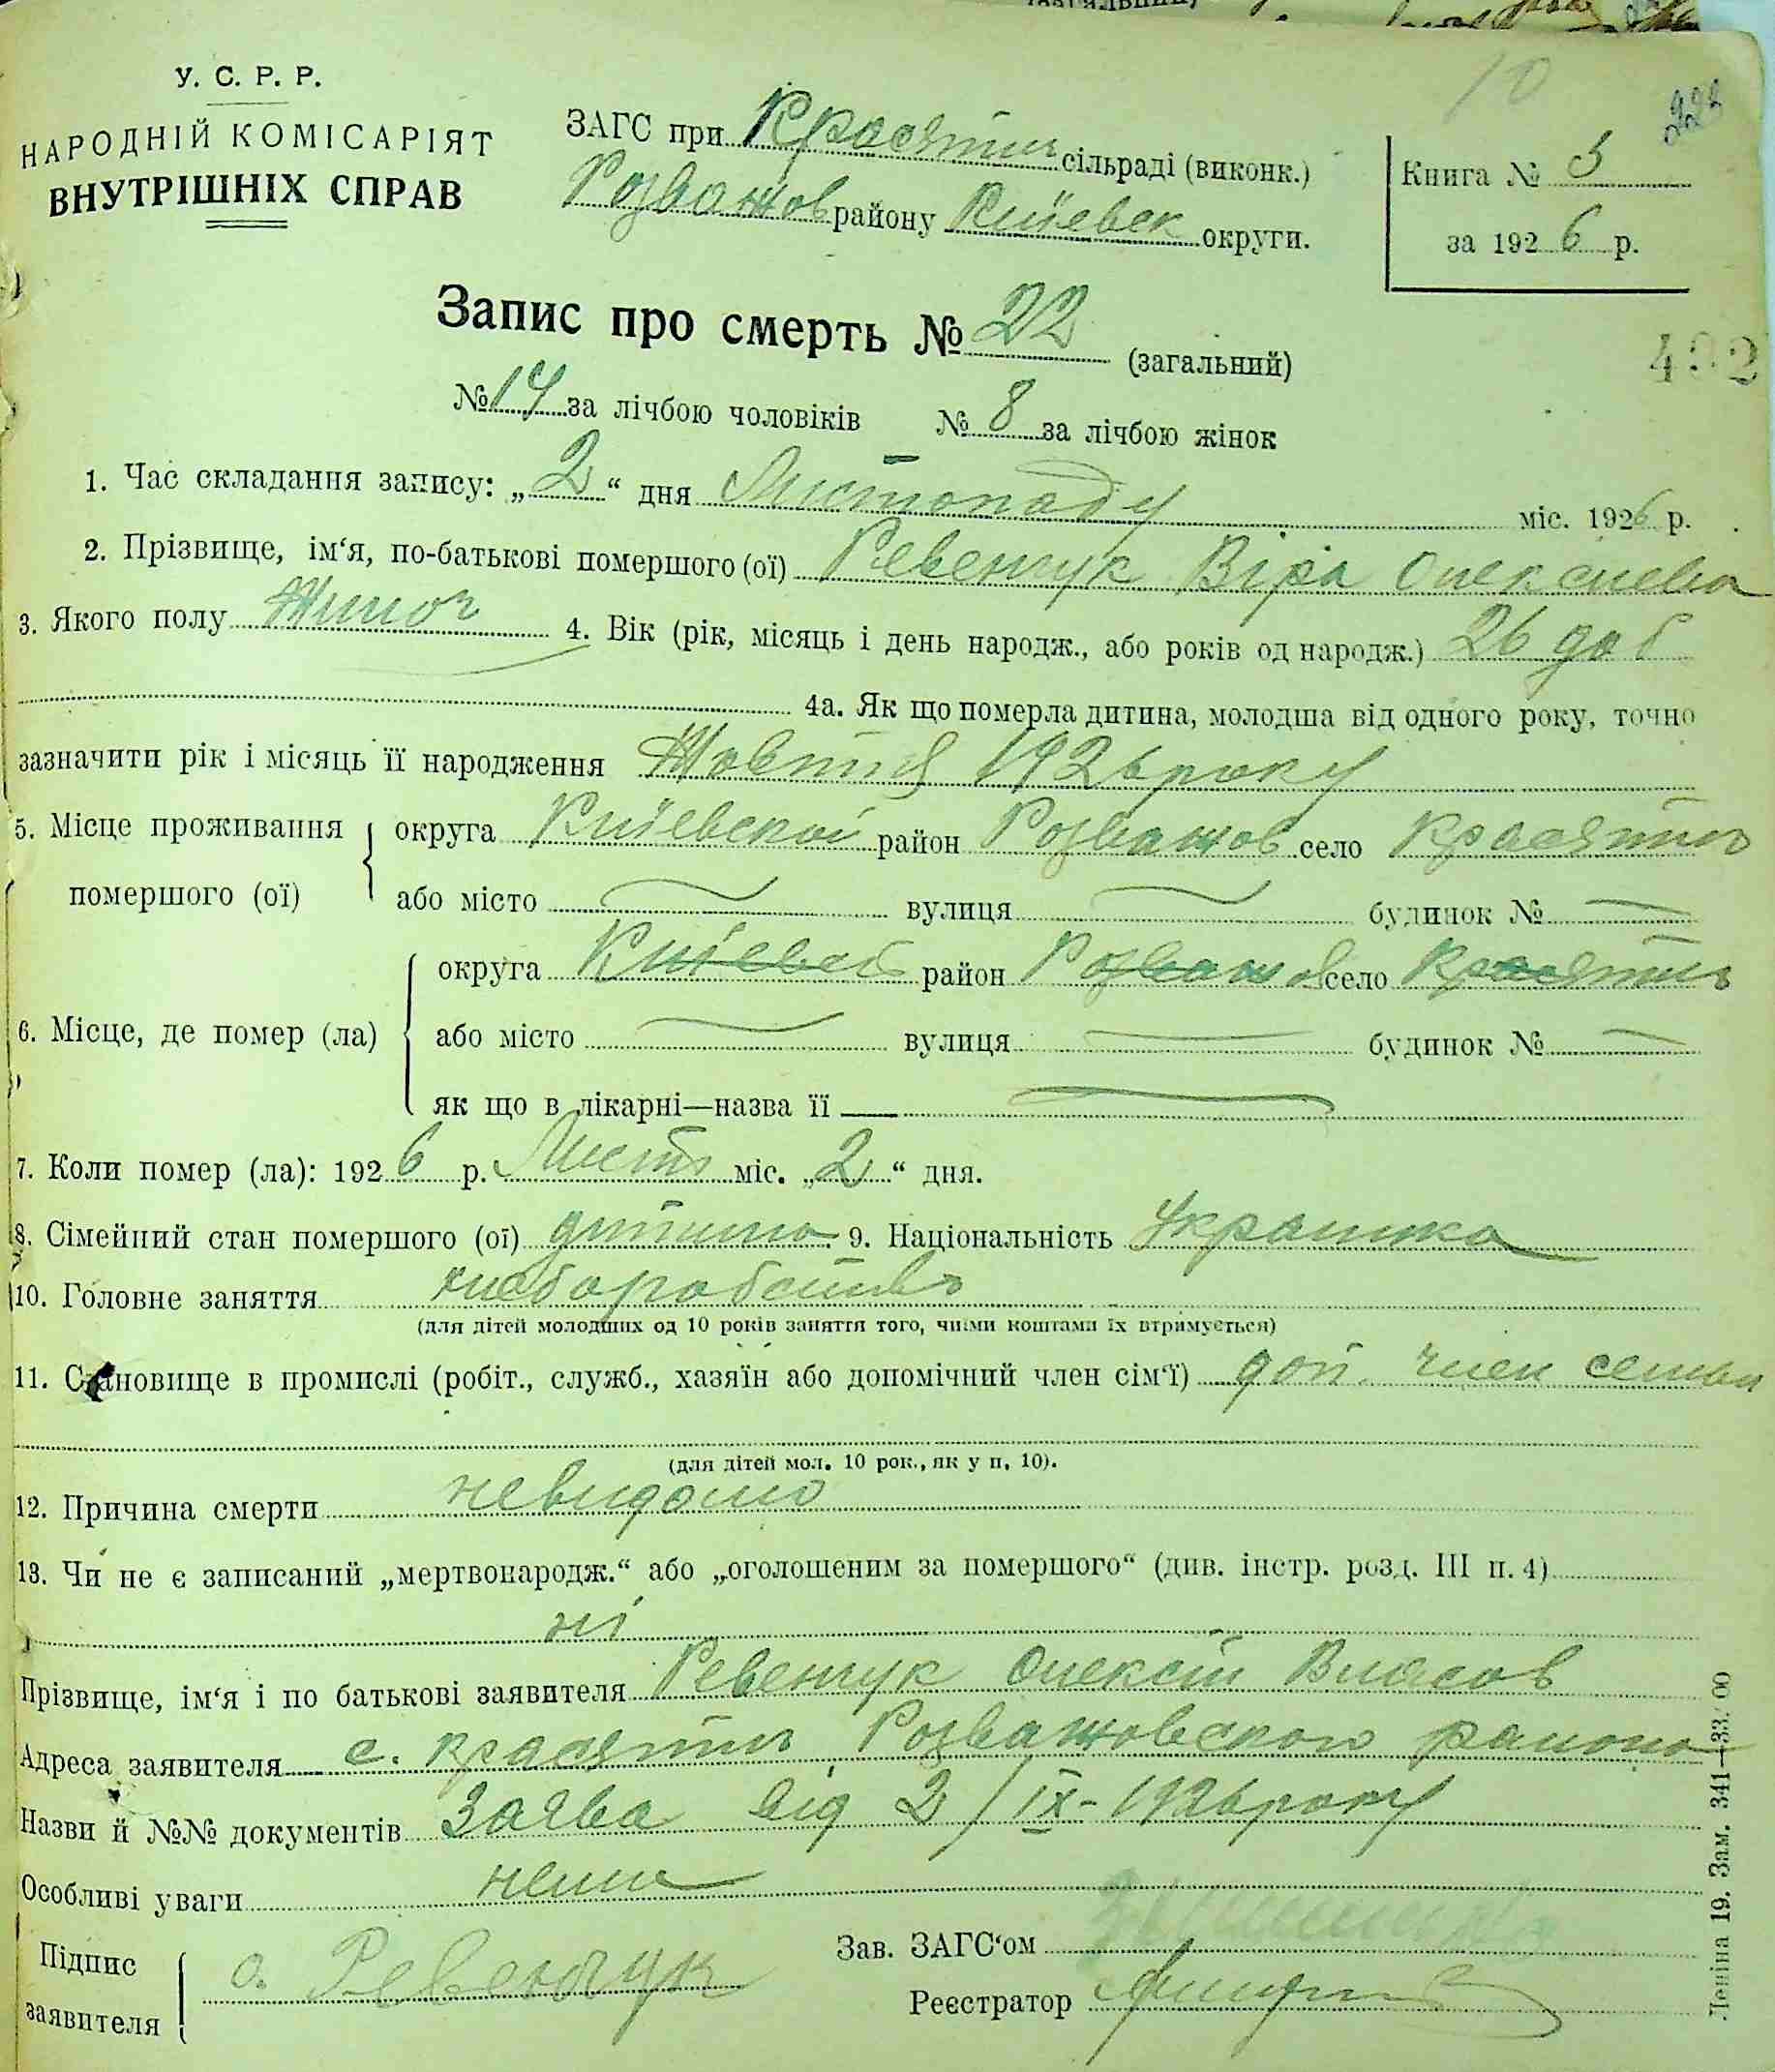 У. С. Р. Р.
НАРОДНІЙ КОМІСАРІЯТ
ВНУТРІШНІХ СПРАВ
ЗАГС при Красятич сільраді (виконк.)
Розважов району Київск округи.
Книга № 3
за 1926 р.
10
Запис про смерть № 22 (загальний)
№ 14 за лічбою чоловіків № 8 за лічбою жінок
1. Час складання запису: „2“ дня Листопаду міс. 1926 р.
2. Прізвище, ім‘я, по-батькові помершого (ої) Ревенчук Віра Олексієвна
3. Якого полу Жиноч 4. Вік (рік, місяць і день народж., або років од народж.) 26 доб
4а. Як що померла дитина, молодша від одного року, точно
зазначити рік і місяць її народження Жовтня 1926 року
5. Місце проживання помершого (ої) округа Київской район Розважов село Красятич
або місто вулиця будинок №
6. Місце, де помер (ла) округа район Розважов село Красятич
або місто вулиця будинок №
як що в лікарні—назва її
7. Коли помер (ла): 1926 р. Лист міс. „2“ дня.
8. Сімейний стан помершого (ої) дитина 9. Національність Украинка
10. Головне заняття хлеборобство
(для дітей молодших од 10 років заняття того, чиїми коштами їх втримується)
11. Становище в промислі (робіт., служб., хазяїн або допомічний член сім‘ї) доп. член семьи
(для дітей мол. 10 рок., як у п. 10).
12. Причина смерти невидомо
13. Чи не є записаний „мертвонародж.“ або „оголошеним за помершого“ (див. інстр. розд. III п. 4)
ні
Прізвище, ім‘я і по батькові заявителя Ревенчук Олексій Власов
Адреса заявителя с. Красятич Розважовского району
Назви й №№ документів Заява від 2/IX-1926 року
Особливі уваги нема
Підпис заявителя О. Ревенчук
Зав. ЗАГС‘ом
Реєстратор
Леніна 19. Зам. 341—33.